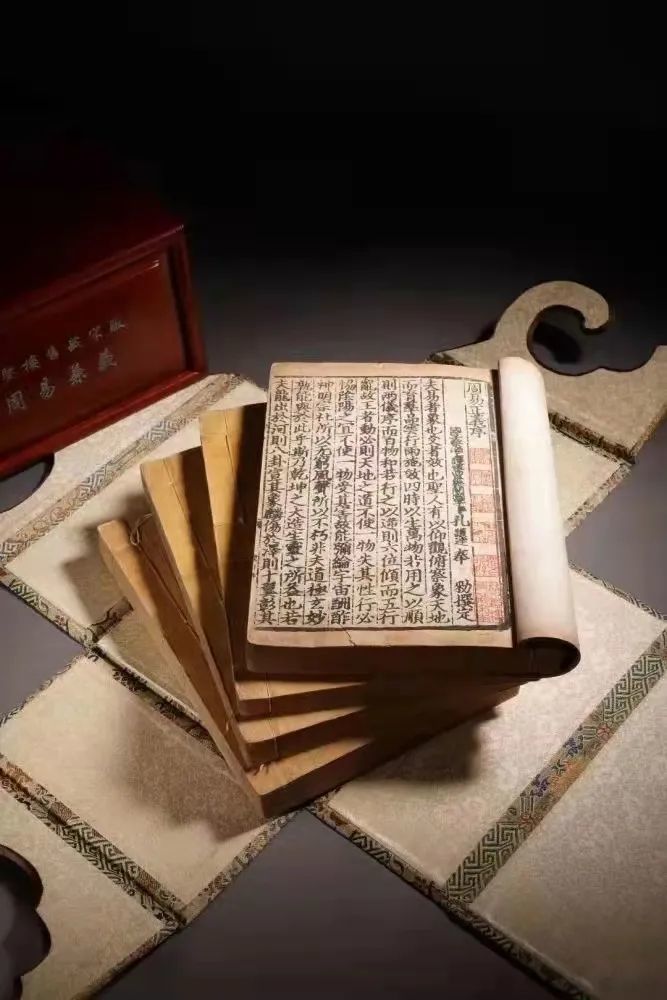 樓舊藏宋版
周易兼義
周易正義序
孔穎達奉 勅撰定
夫易者象也爻者效也聖人有以仰觀俯察象天地
而育羣品雲行雨施效四時以生萬物若用之以順
則兩儀序而百物和若行之以逆則六位傾而五行
亂故王者動必則天地之道不使一物失其性行必
協陰陽之宜不使一物受其害故能彌綸宇宙酬酢
神明宗社所以无窮風聲所以不朽非夫道極玄妙
孰能與於此乎斯乃乾坤之大造生靈之所益也若
夫龍出於河則八卦宣其象麟傷於澤則十翼彰其